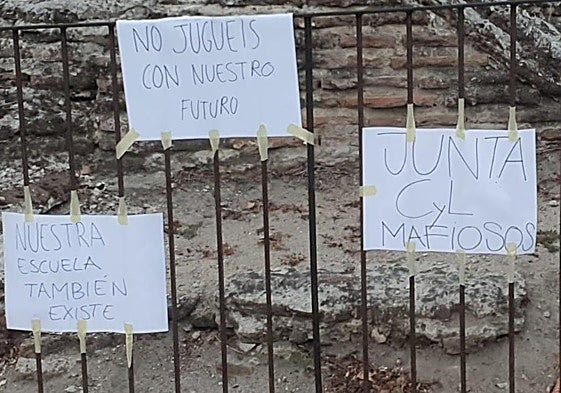 NO JUGUEIS
CON NUESTRO
FUTURO
JUNTA
CyL
MAFIOSOS
NUESTRA
ESCUELA
TAMBIÉN
EXISTE